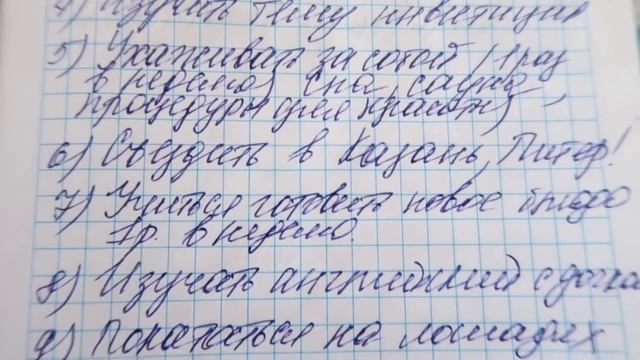 4) Изучить тему инвестиции
5) Ухаживать за собой (1 раз
в неделю) спа, сауна,
процедуры для красоты)
6) Съездить в Казань, Питер!
7) Учиться готовить новое блюдо
1р. в неделю.
8) Изучать английский с дочка
9) Покататься на лошадях